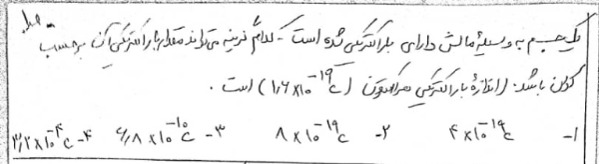 یک جسم به وسیلهٔ مالش دارای بار الکتریکی شده است - کدام گزینه می‌تواند مقدار بار الکتریکی آن برحسب
کولن باشد: (اندازهٔ بار الکتریکی هر الکترون (۱٫۶×۱۰⁻¹⁹c) است.
۱- ۴×۱۰⁻¹⁹c ۲- ۸×۱۰⁻¹⁹c ۳- ۶٫۸×۱۰⁻¹⁰c ۴- ۳٫۲×۱۰⁻⁴c